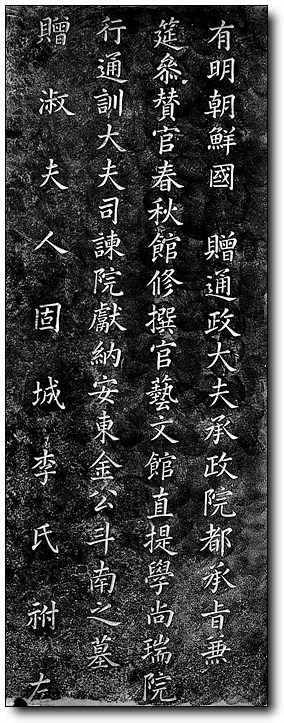 有明朝鮮國 贈通政大夫承政院都承旨兼
筵參贊官春秋館修撰官藝文館直提學尚瑞院
行通訓大夫司諫院獻納安東金公斗南之墓
贈淑夫人固城李氏祔左